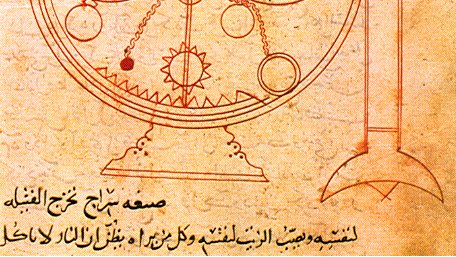 صنعه سراج يخرج الفتيله
لنفسه ويصب الزيت لنفسه وكل من يراه يظن ان النار لا تاكل